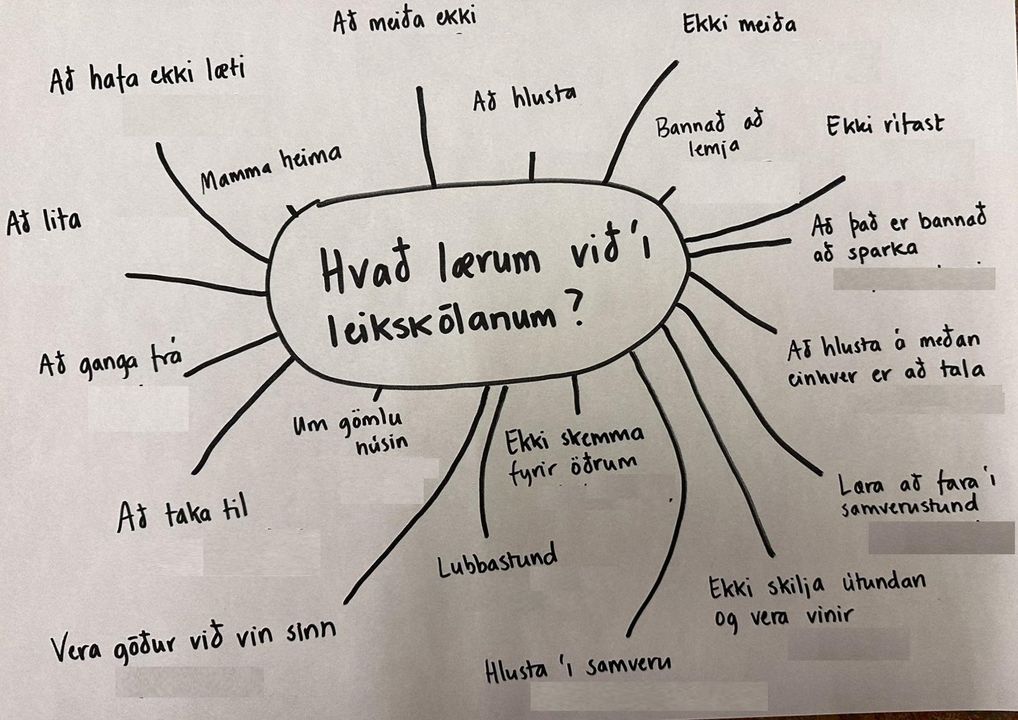 Hvað lærum við í
leikskólanum?
Að meiða ekki
Að hlusta
Ekki meiða
Bannað að
lemja
Ekki rífast
Að það er bannað
að sparka
Að hlusta á meðan
einhver er að tala
Lara að fara í
samverustund
Ekki skilja útundan
og vera vinir
Hlusta í samveru
Ekki skemma
fyrir öðrum
Lubbastund
Vera góður við vin sinn
Um gömlu
húsin
Að taka til
Að ganga frá
Að lita
Að hafa ekki læti
Mamma heima